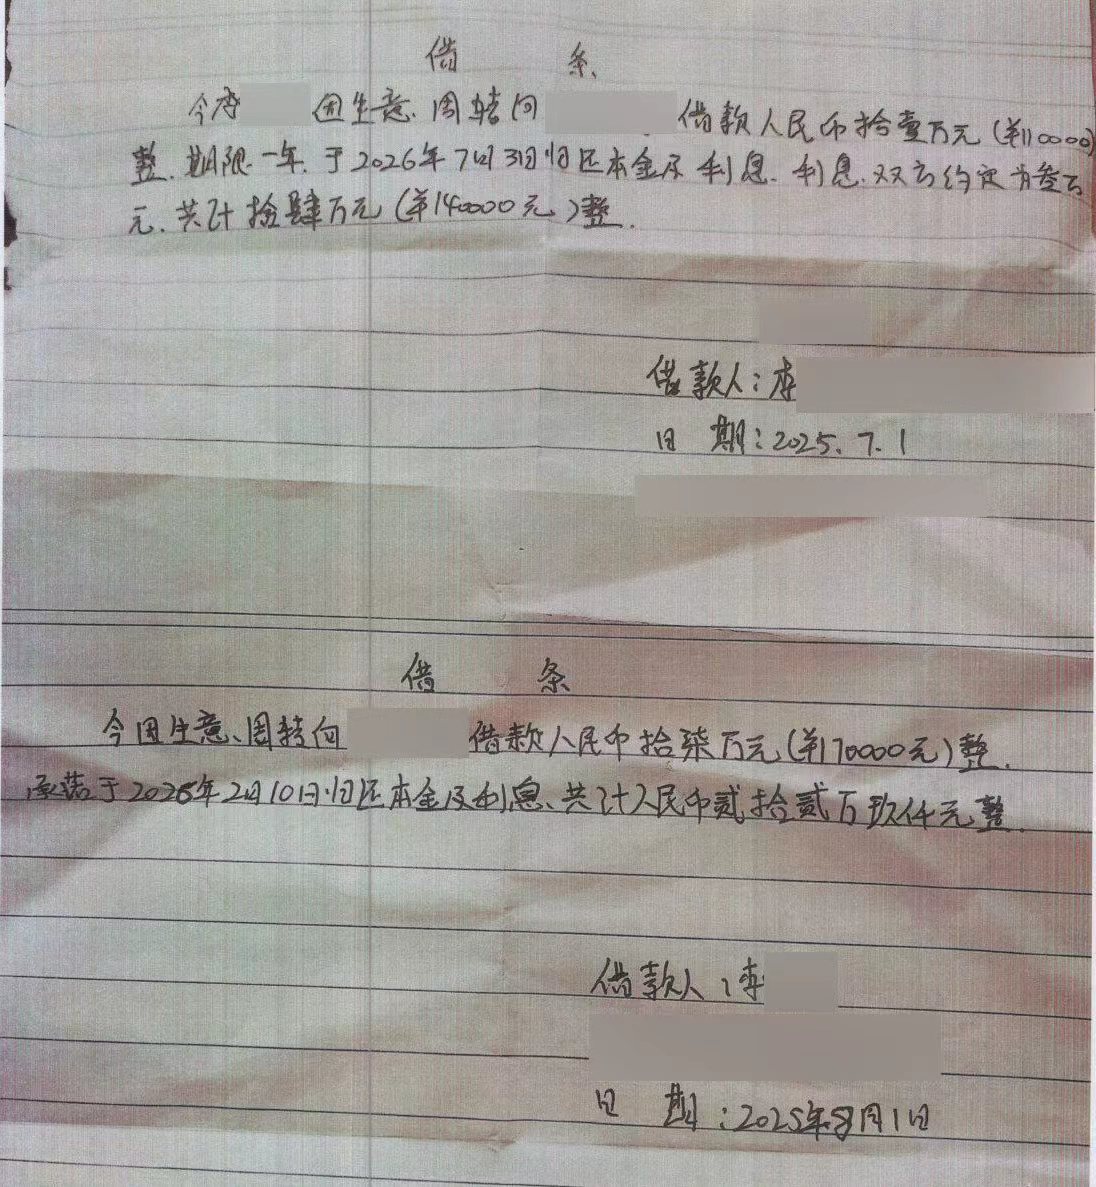 借 条
今李 因生意、周转向 借款人民币拾壹万元(￥110000)
整.期限一年.于2026年7月3日归还本金及利息.利息.双方约定为叁万
元.共计拾肆万元(￥140000元)整.
借款人:李
日 期:2025.7.1
借 条
今因生意、周转向 借款人民币拾柒万元(￥170000元)整.
承诺于2026年2月10日归还本金及利息、共计人民币贰拾贰万玖仟元整.
借款人:李
日 期:2025年8月1日